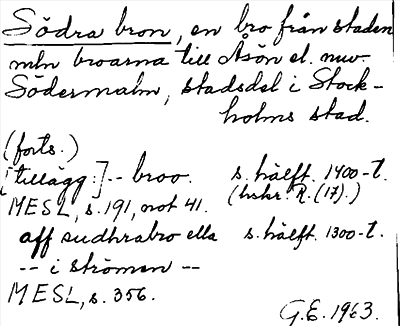 Södra bron, en bro från staden
mln broarna till Åsön el. nuv.
Södermalm, stadsdel i Stock-
holms stad.
(forts.)
[tillägg:] -- broo. s. hälft. 1400-t.
MESL, s. 191, not 41. (hskr. R. (17).)
aff sudhrabro ella s. hälft. 1300-t.
-- i strömen --
MESL, s. 356.
G.E. 1963.